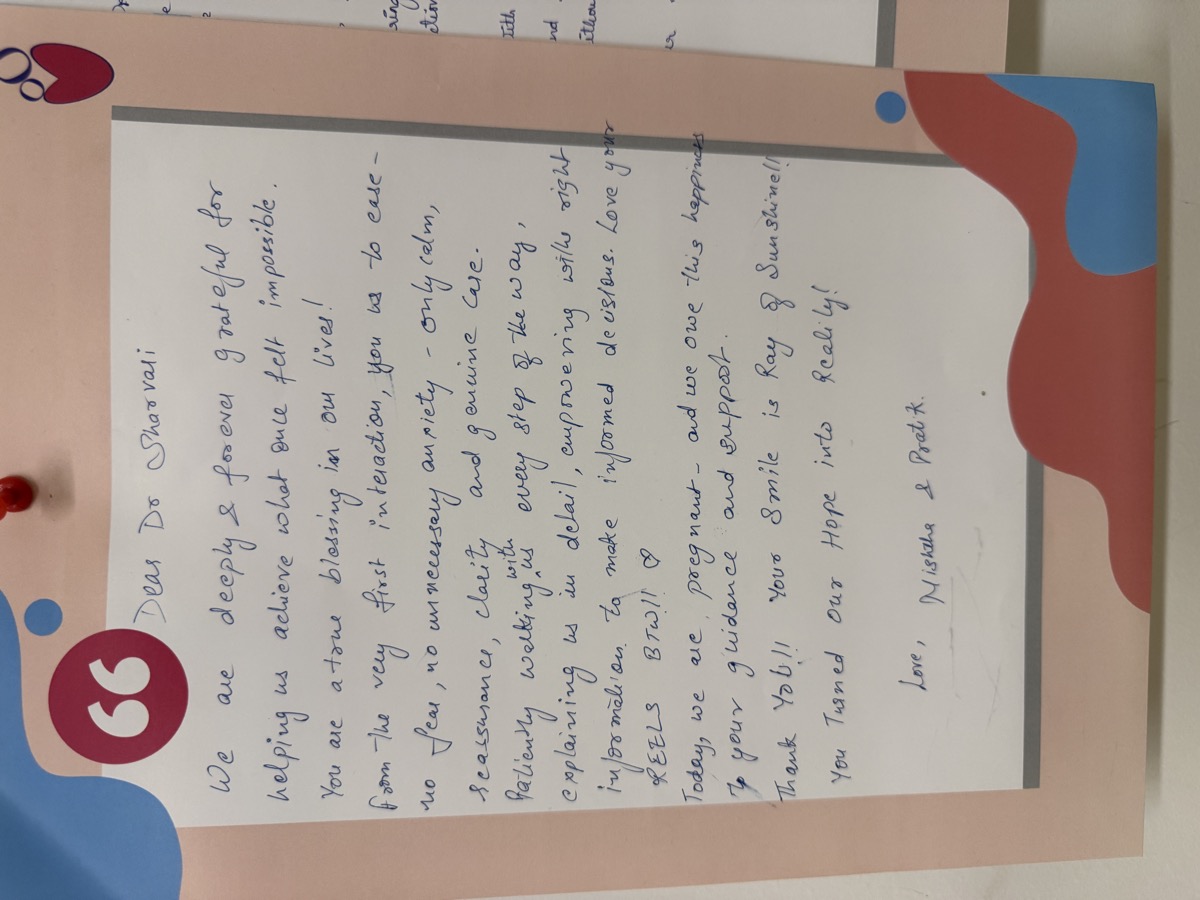 Dear Dr Sharvari
We are deeply & forever grateful for
helping us achieve what once felt impossible.
You are a true blessing in our lives!
From the very first interaction, you us to ease -
no fear, no unnecessary anxiety - only calm,
reassurance, clarity and genuine care.
Patiently walking with us every step of the way,
explaining us in detail, empowering with right
information to make informed decisions. Love your
REELS BTW!! ♡
Today, we are pregnant - and we owe this happiness
to your guidance and support.
Thank You!! Your Smile is Ray of Sunshine!!
You Turned our Hope into Reality!
Love,
Nishtha & Pratik.